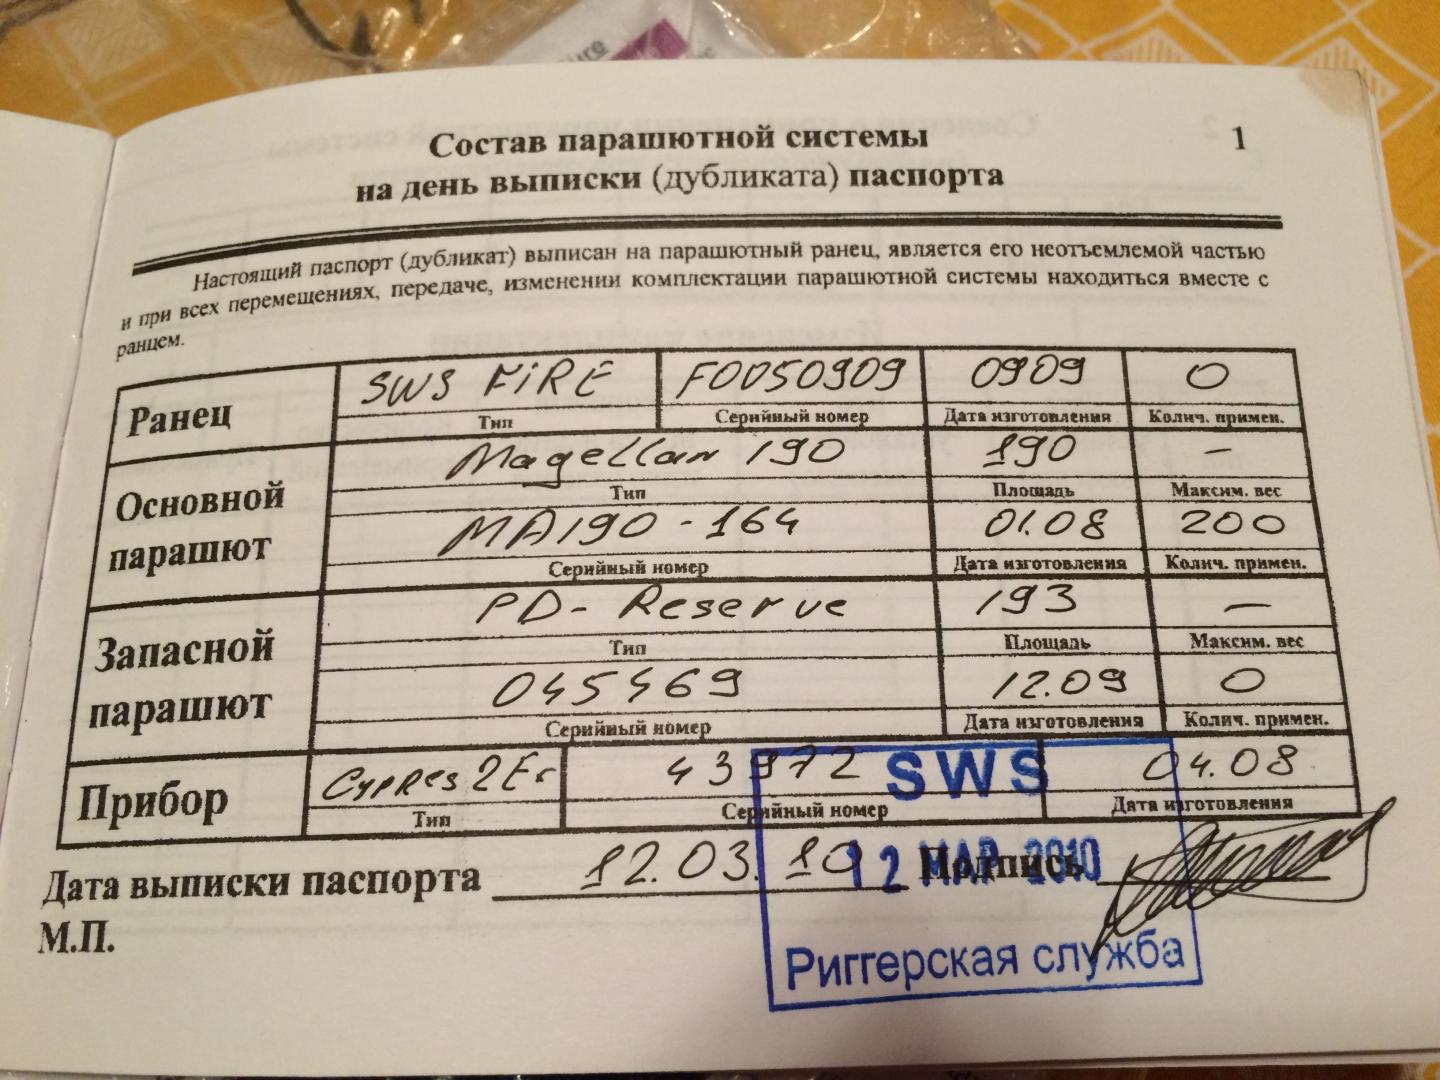 Состав парашютной системы 1
на день выписки (дубликата) паспорта
Настоящий паспорт (дубликат) выписан на парашютный ранец, является его неотъемлемой частью
и при всех перемещениях, передаче, изменении комплектации парашютной системы находиться вместе с
ранцем.
Ранец SWS FiRE F0050909 0909 0
Тип Серийный номер Дата изготовления Колич. примен.
Основной парашют
Magellan 190 190 -
Тип Площадь Максим. вес
MA190-164 01.08 200
Серийный номер Дата изготовления Колич. примен.
Запасной парашют
PD-Reserve 193 -
Тип Площадь Максим. вес
045469 12.09 0
Серийный номер Дата изготовления Колич. примен.
Прибор Cypres 2 43972 04.08
Тип Серийный номер Дата изготовления
SWS
Дата выписки паспорта 12.03.10 Подпись
12 МАР 2010
М.П.
Риггерская служба